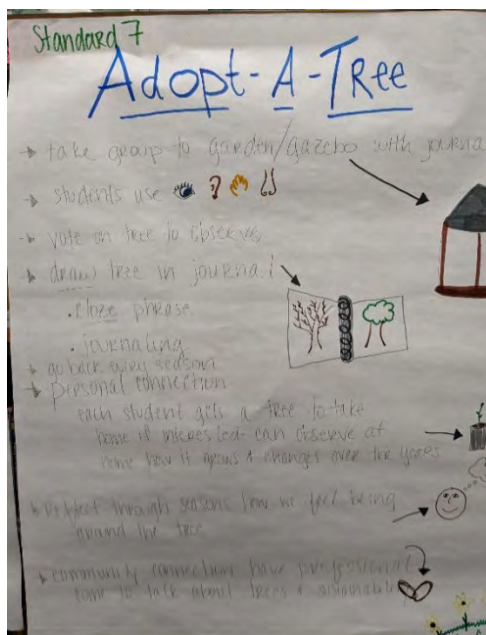 Standard 7
Adopt-A-Tree
→ take group to garden/gazebo with journa
→ students use
→ vote on tree to observe
→ draw tree in journal
. cloze phrase
. journaling
→ go back every season
→ personal connection
each student gets a tree to take
home if interested- can observe at
home how it grows & changes over the years
→ reflect through seasons how we feel being
around the tree
→ community connection have professional
come to talk about trees &